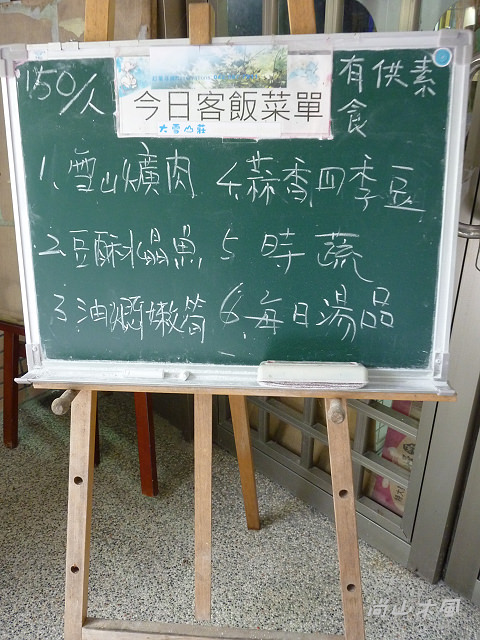 150/人
今日客飯菜單
大雪山莊
有供素
食
1、雪山爌肉
2、豆酥水晶魚
3、油燜嫩筍
4、蒜香四季豆
5、時蔬
6、每日湯品
尚山大風